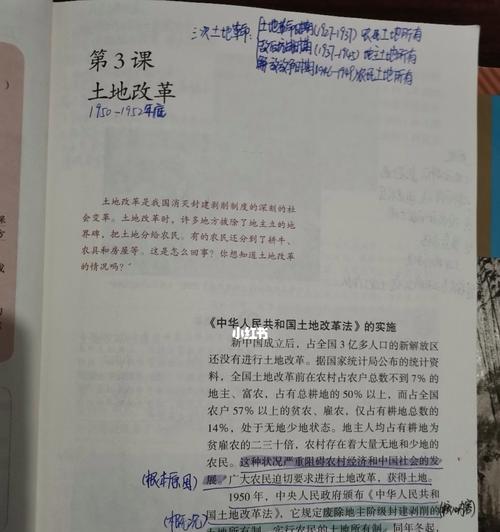 三次土地革命：
土地革命时期(1927-1937) 农民土地所有
抗日战争时期(1937-1945) 地主土地所有
解放战争时期(1946-1949)农民土地所有
第3课
土地改革
1950-1952年底
土地改革是我国消灭封建剥削制度的深刻的社
会变革。土地改革时，许多地方拔除了地主立的地
界碑，把土地分给农民。有的农民还分到了耕牛、
农具和房屋等。这是怎么回事？你想知道土地改革
的情况吗？
小红书
《中华人民共和国土地改革法》的实施
新中国成立后，占全国3亿多人口的新解放区
还没有进行土地改革。据国家统计局公布的统计资
料，全国土地改革前在农村占农户总数不到7%的
地主、富农，占有总耕地的50%以上，而占全国
农户57%以上的贫农、雇农，仅占有耕地总数的
14%，处于无地少地状态。地主人均占有耕地为
贫雇农的二三十倍，农村存在着大量无地和少地的
农民。这种状况严重阻碍农村经济和中国社会的发
展。广大农民迫切要求进行土地改革，获得土地。
(根本原因)
1950年，中央人民政府颁布《中华人民共和
国土地改革法》，它规定废除地主阶级封建剥削的
土地所有制，实行农民的土地所有制。同年冬起，